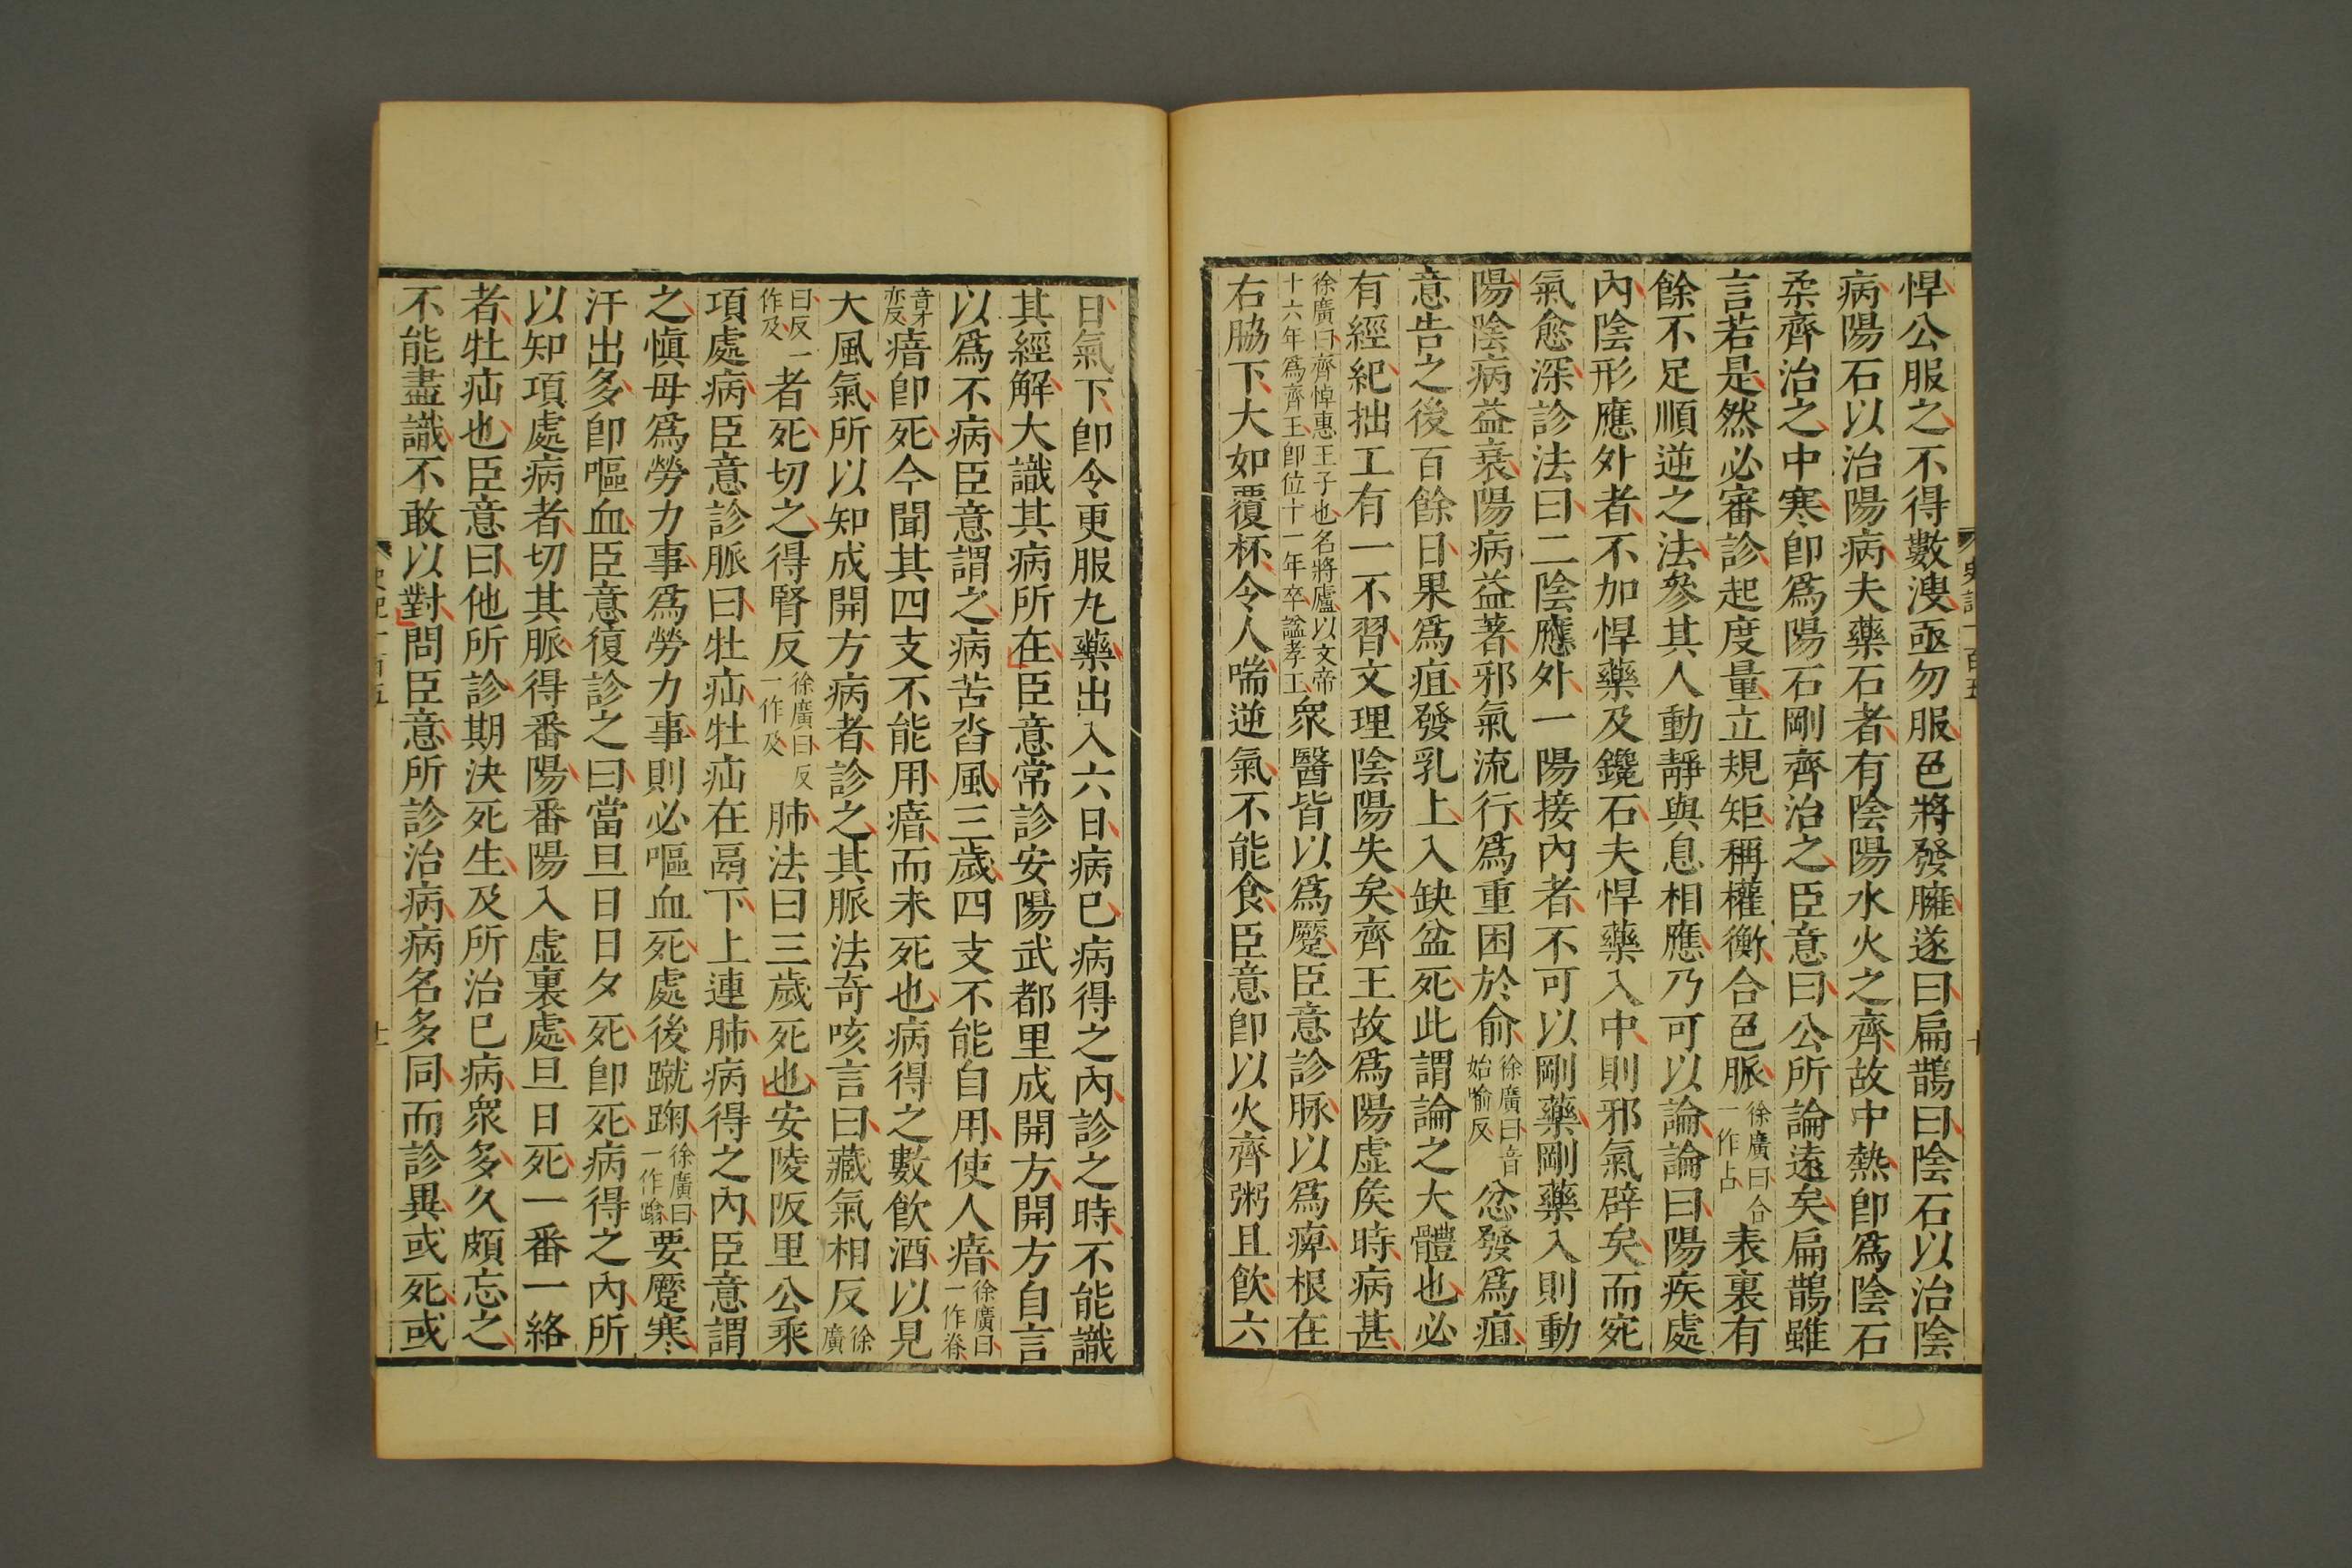 悍公服之不得數溲亟勿服色將發臃遂曰扁鵲曰陰石以治陰
病陽石以治陽病夫藥石者有陰陽水火之齊故中熱卽爲陰石
柔齊治之中寒卽爲陽石剛齊治之臣意曰公所論遠矣扁鵲雖
言若是然必審診起度量立規矩稱權衡合色脈徐廣曰合一作占表裏有
餘不足順逆之法參其人動靜與息相應乃可以論論曰陽疾處
內陰形應外者不加悍藥及鑱石夫悍藥入中則邪氣辟矣而宛
氣愈深診法曰二陰應外一陽接內者不可以剛藥剛藥入則動
陽陰病益衰陽病益著邪氣流行爲重困於俞徐廣曰音始喻反忿發爲疽
意告之後百餘日果爲疽發乳上入缺盆死此謂論之大體也必
有經紀拙工有一不習文理陰陽失矣齊王故爲陽虛矦時病甚
徐廣曰齊悼惠王子也名將廬以文帝十六年爲齊王卽位十一年卒諡孝王衆醫皆以爲蹷臣意診脉以爲痺根在
右脇下大如覆杯令人喘逆氣不能食臣意卽以火齊粥且飲六
日氣下卽令更服丸藥出入六日病已病得之內診之時不能識
其經解大識其病所在臣意常診安陽武都里成開方開方自言
以爲不病臣意謂之病苦沓風三歲四支不能自用使人瘖徐廣曰一作脊
音才亦反瘖卽死今聞其四支不能用瘖而未死也病得之數飲酒以見
大風氣所以知成開方病者診之其脈法奇咳言曰藏氣相反徐廣
曰反作及一者死切之得腎反徐廣曰反一作及肺法曰三歲死也安陵阪里公乘
項處病臣意診脈曰牡疝牡疝在鬲下上連肺病得之內臣意謂
之愼毋爲勞力事爲勞力事則必嘔血死處後蹴踘徐廣曰一作蹹要蹷寒
汗出多卽嘔血臣意復診之曰當旦日日夕死卽死病得之內所
以知項處病者切其脈得番陽番陽入虛裏處旦日死一番一絡
者牡疝也臣意曰他所診期決死生及所治已病衆多久頗忘之
不能盡識不敢以對問臣意所診治病病名多同而診異或死或